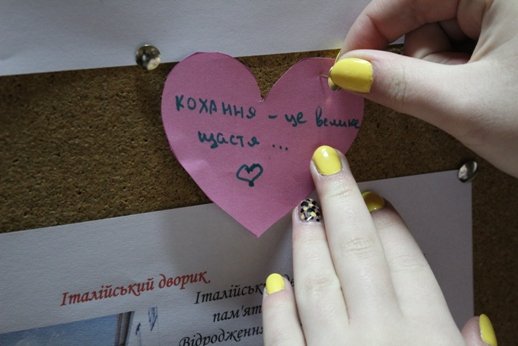 кохання – це велике
щастя ...
Італійський дворик
Італійськ
пам'ят
Відродження